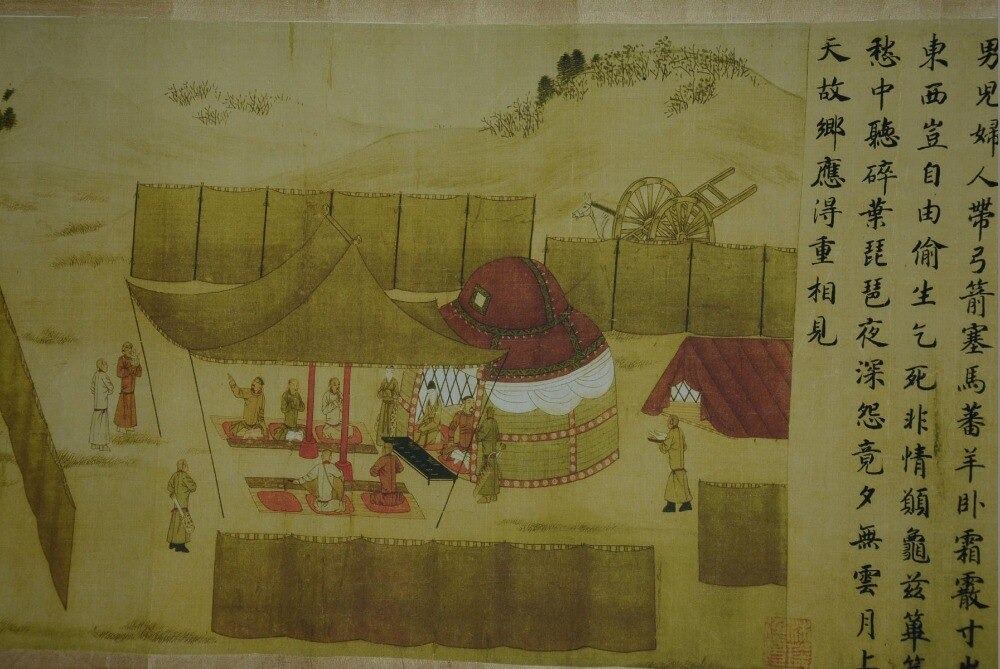 男兒婦人帶弓箭塞馬蕃羊卧霜霰寸
東西豈自由偷生乞死非情願龜茲篳
愁中聽碎葉琵琶夜深怨竟夕無雲月上
天故鄉應得重相見